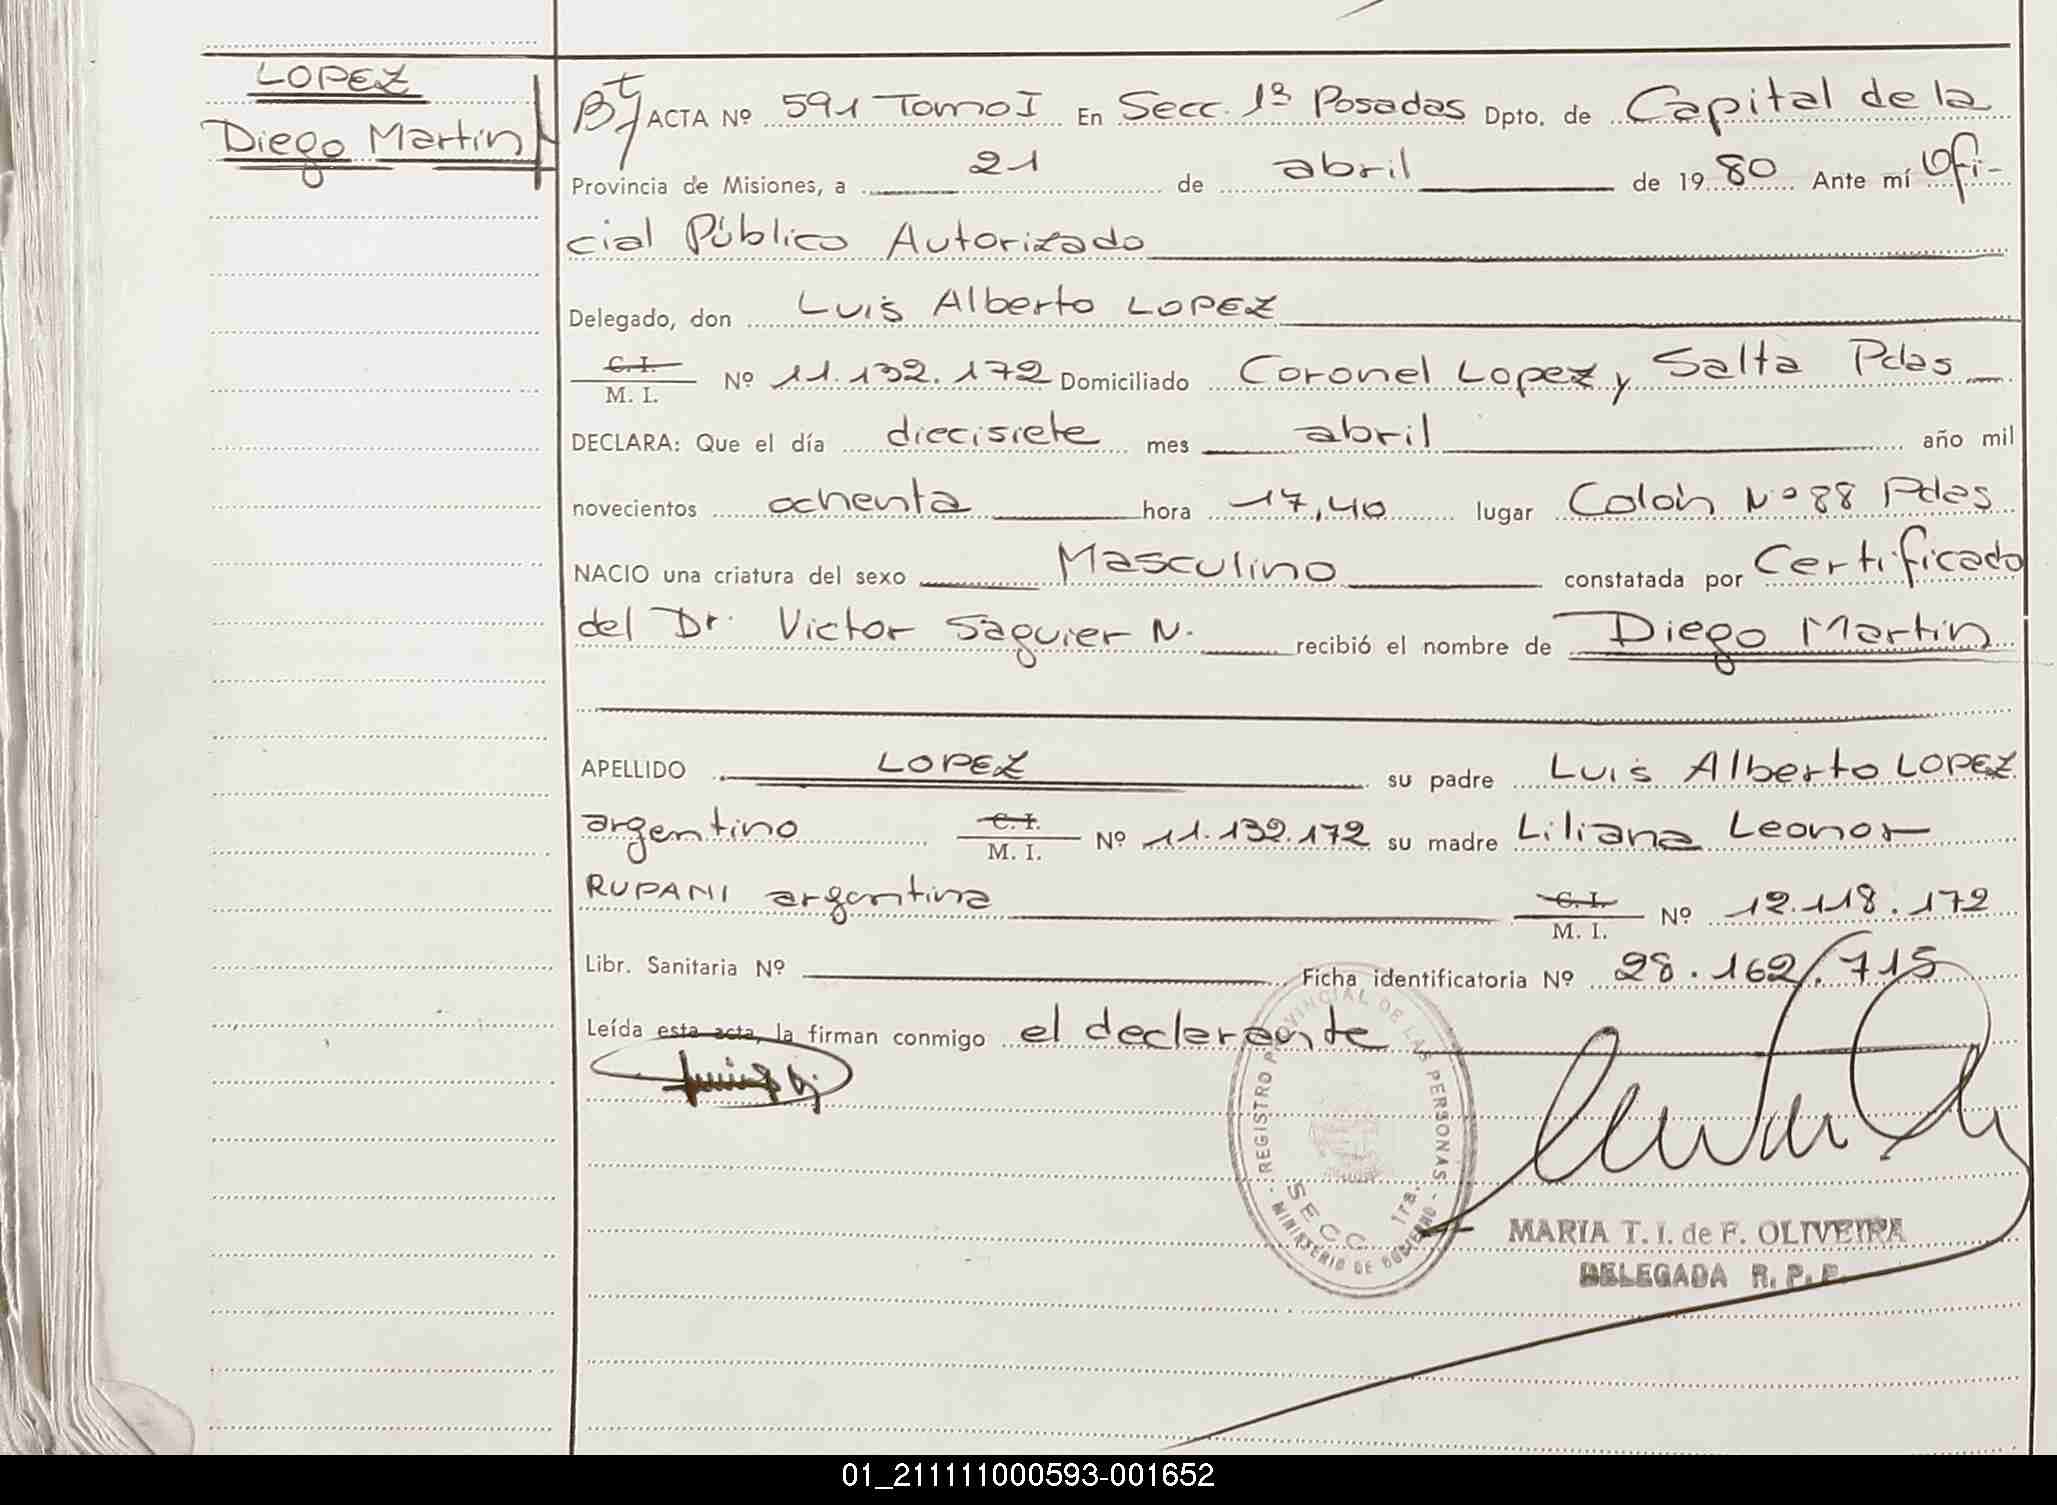 LOPEZ
Diego Martin
ACTA Nº 591 Tomo I En Secc. 1ª Posadas Dpto. de Capital de la
Provincia de Misiones, a 21 de abril de 1980 Ante mí Ofi-
cial Público Autorizado
Delegado, don Luis Alberto LOPEZ
C. I.
M. I. Nº 11.132.172 Domiciliado Coronel Lopez y Salta Pdas
DECLARA: Que el día diecisiete mes abril año mil
novecientos ochenta hora 17,40 lugar Colón Nº 88 Pdas
NACIO una criatura del sexo Masculino constatada por Certificado
del Dr. Victor Saguier N. recibió el nombre de Diego Martin
APELLIDO LOPEZ su padre Luis Alberto LOPEZ
argentino C. I.
M. I. Nº 11.132.172 su madre Liliana Leonor
RUPANI argentina C. I.
M. I. Nº 12.118.172
Libr. Sanitaria Nº Ficha identificatoria Nº 28.162.715
Leída esta acta, la firman conmigo el declarante
REGISTRO PROVINCIAL DE LAS PERSONAS
SECC. 1ra.
MINISTERIO DE GOBIERNO
MARIA T. I. de F. OLIVEIRA
DELEGADA R. P. P.
01_211111000593-001652